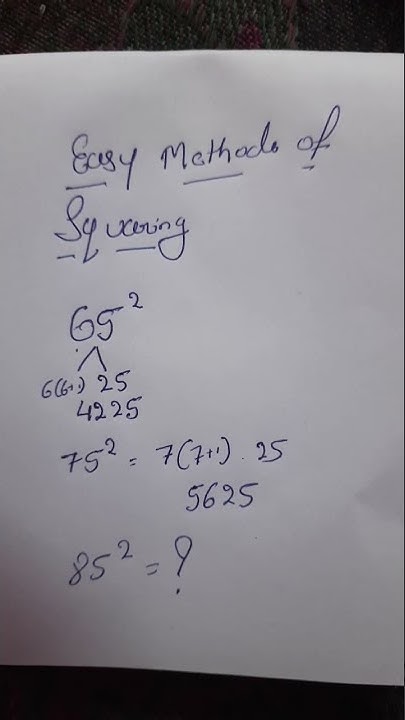 Easy Methods of
Squaring
65²
6(6+1) 25
4225
75² = 7(7+1) . 25
5625
85² = ?